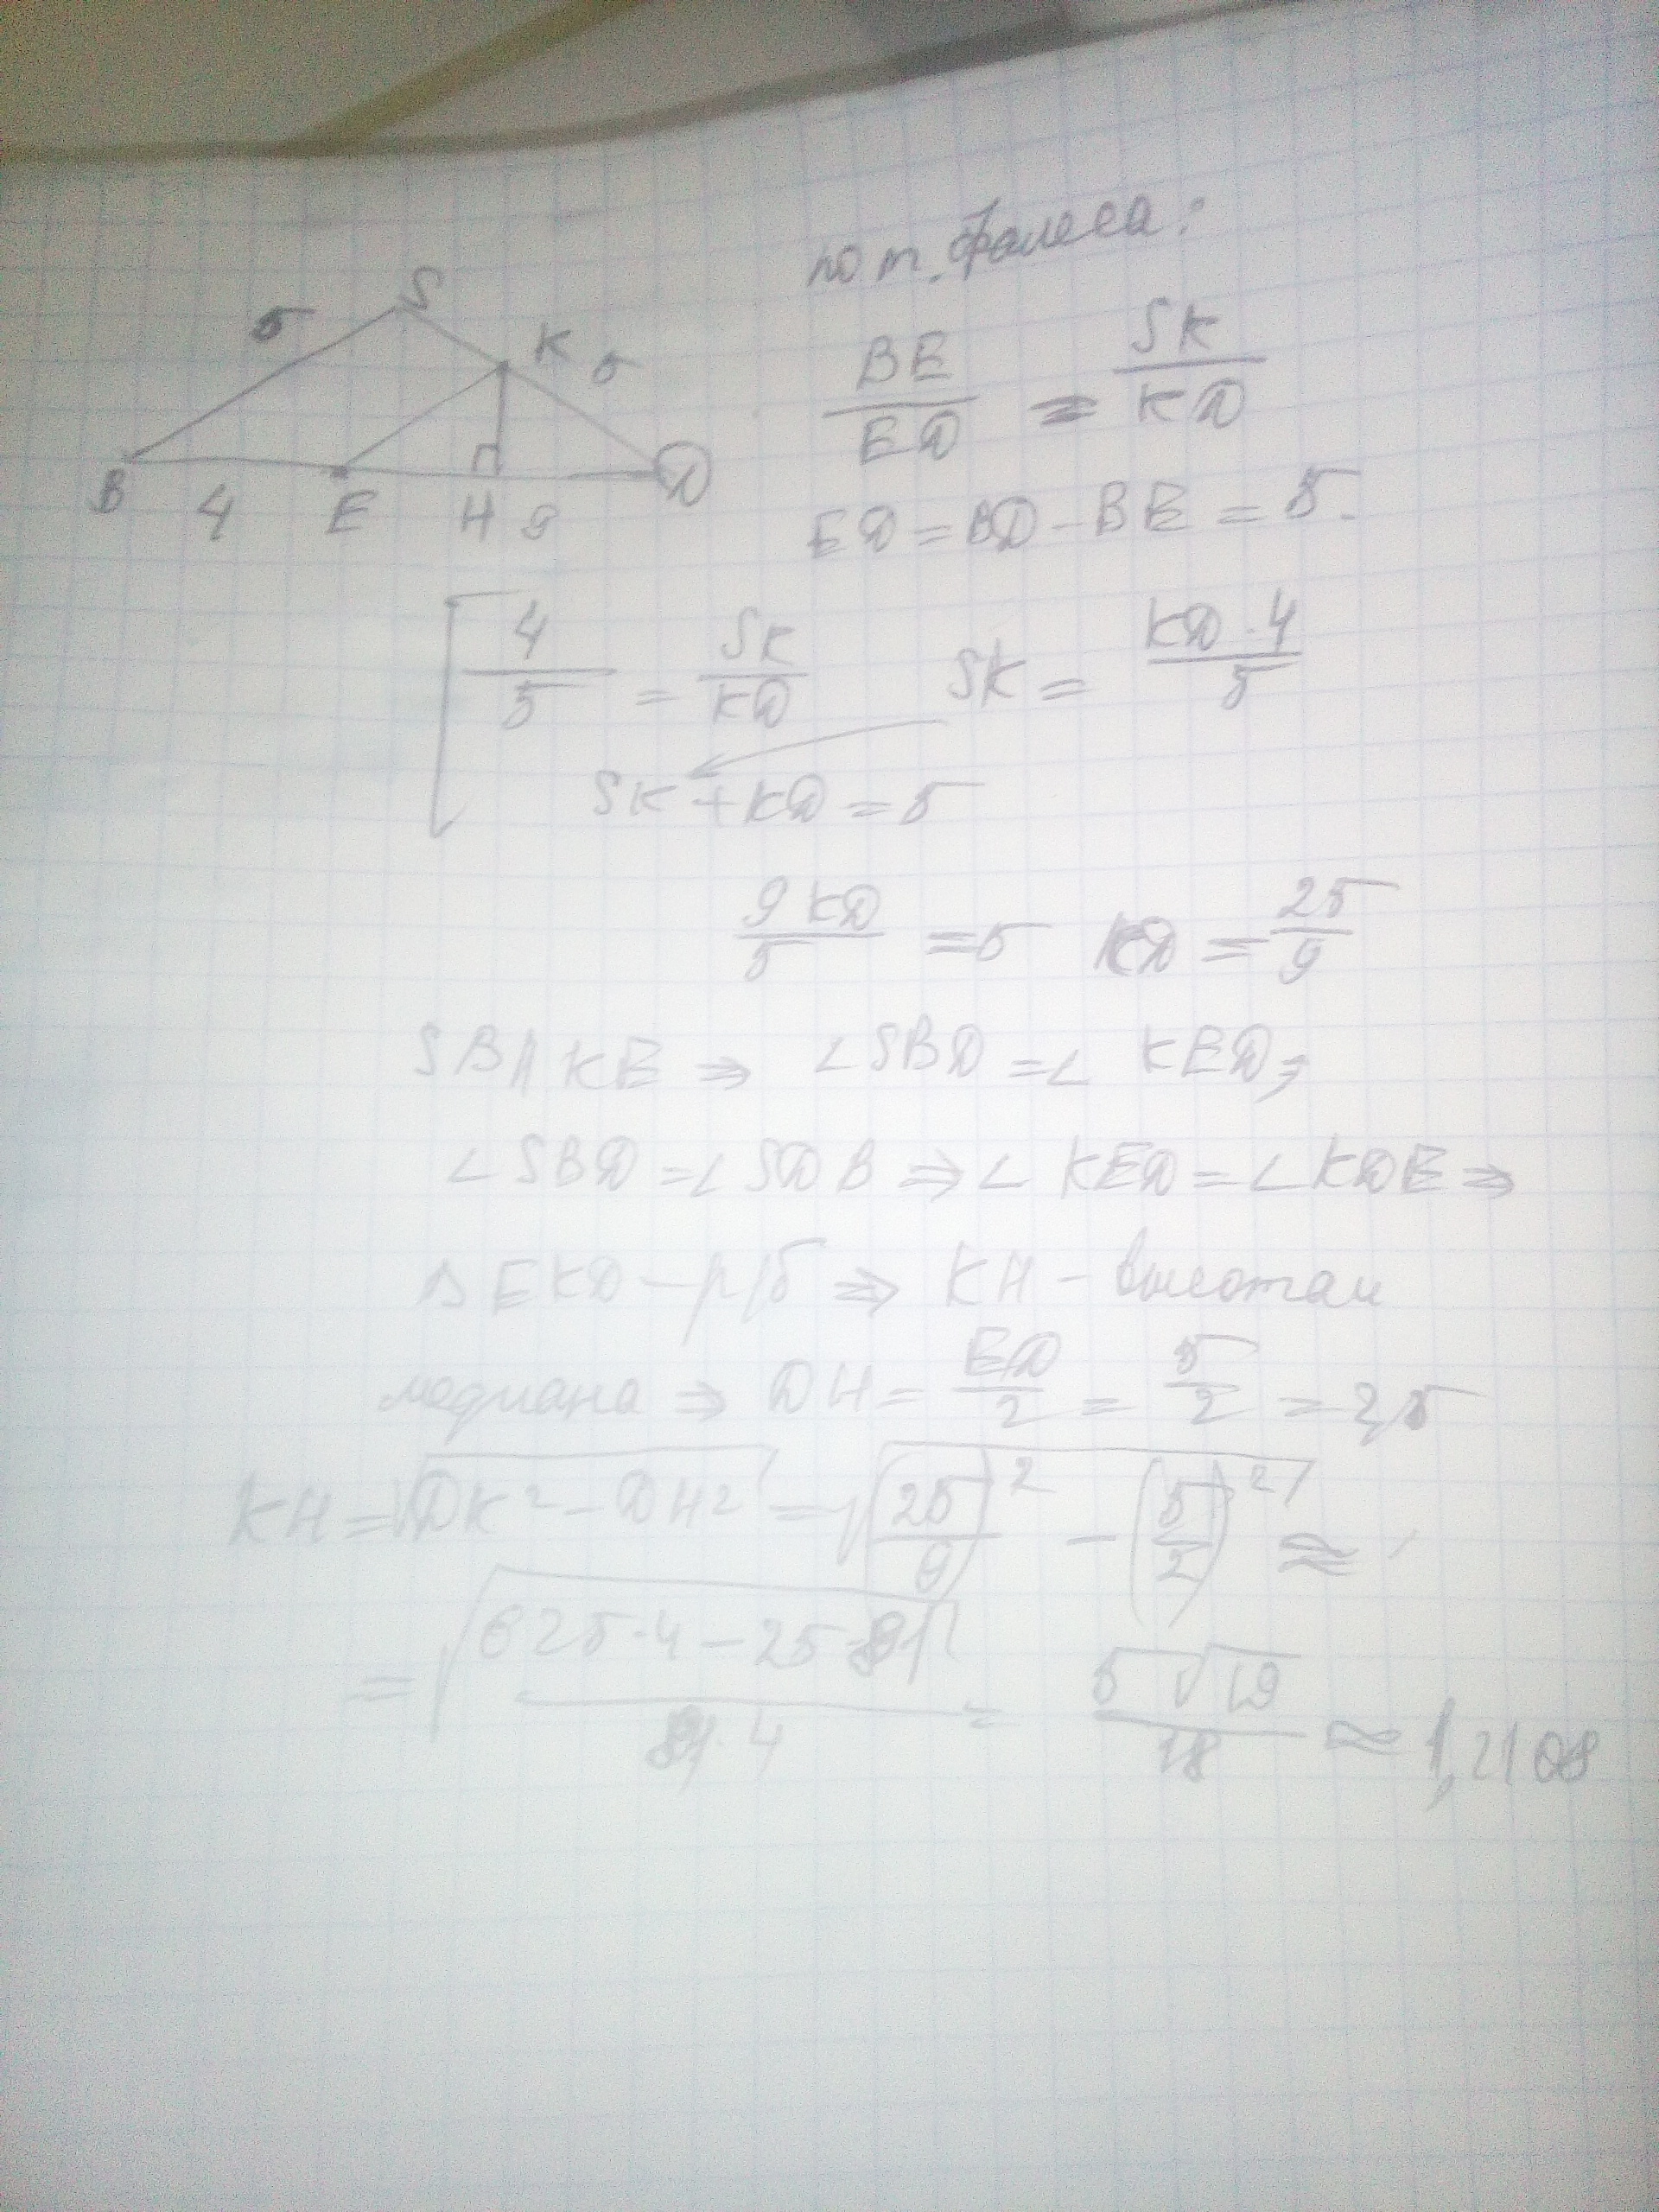 по т. Фалеса:
S
5
K
5
B
4
E
H
9
D
BE/ED = SK/KD
ED = BD - BE = 5.
4/5 = SK/KD SK = KD·4/5
SK + KD = 5
9KD/5 = 5 KD = 25/9
SB ∥ KE ⇒ ∠SBD = ∠KED,
∠SBD = ∠SDB ⇒ ∠KED = ∠KDE ⇒
△EKD - р/б ⇒ KH - высота и
медиана ⇒ DH = ED/2 = 5/2 = 2,5
KH = √(DK² - DH²) = √((25/9)² - (5/2)²) ≈
= √((625·4 - 25·81)/(81·4)) = 5√19/18 ≈ 1,2108